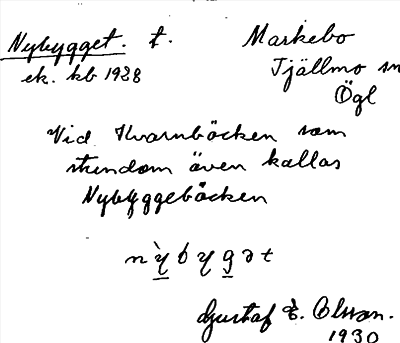 Nybygget. t.
Markebo
ek. kb 1938
Tjällmo sn
Ögl
Vid Kvarnbäcken som
stundom även kallas
Nybyggebäcken
Gustaf E. Olsson.
1930